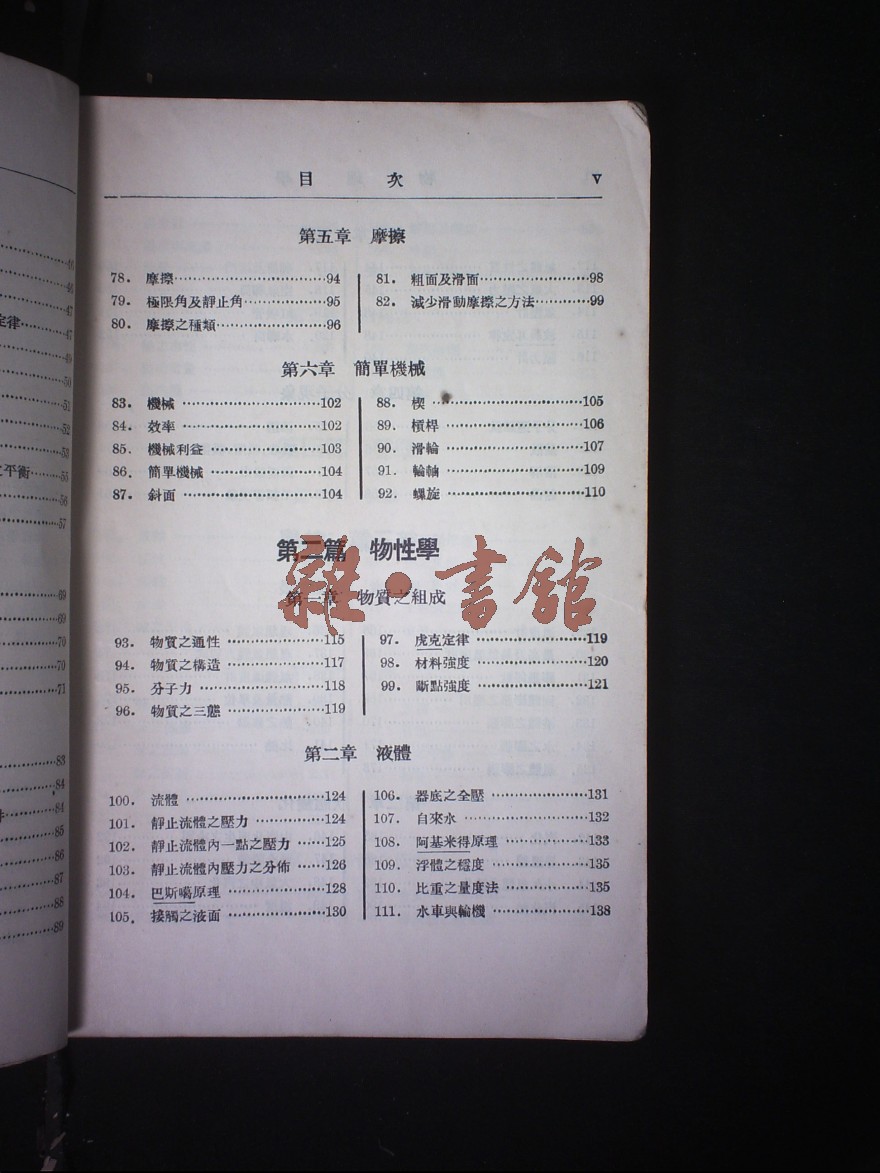 目 次 V
第五章 摩擦
78. 摩擦 94
79. 極限角及靜止角 95
80. 摩擦之種類 96
81. 粗面及滑面 98
82. 減少滑動摩擦之方法 99
第六章 簡單機械
83. 機械 102
84. 效率 102
85. 機械利益 103
86. 簡單機械 104
87. 斜面 104
88. 楔 105
89. 槓桿 106
90. 滑輪 107
91. 輪軸 109
92. 螺旋 110
第二篇 物性學
雜·書館
第一章 物質之組成
93. 物質之通性 115
94. 物質之構造 117
95. 分子力 118
96. 物質之三態 119
97. 虎克定律 119
98. 材料強度 120
99. 斷點強度 121
第二章 液體
100. 流體 124
101. 靜止流體之壓力 124
102. 靜止流體內一點之壓力 125
103. 靜止流體內壓力之分佈 126
104. 巴斯噶原理 128
105. 接觸之液面 130
106. 器底之全壓 131
107. 自來水 132
108. 阿基米得原理 133
109. 浮體之穩度 135
110. 比重之量度法 135
111. 水車與輪機 138